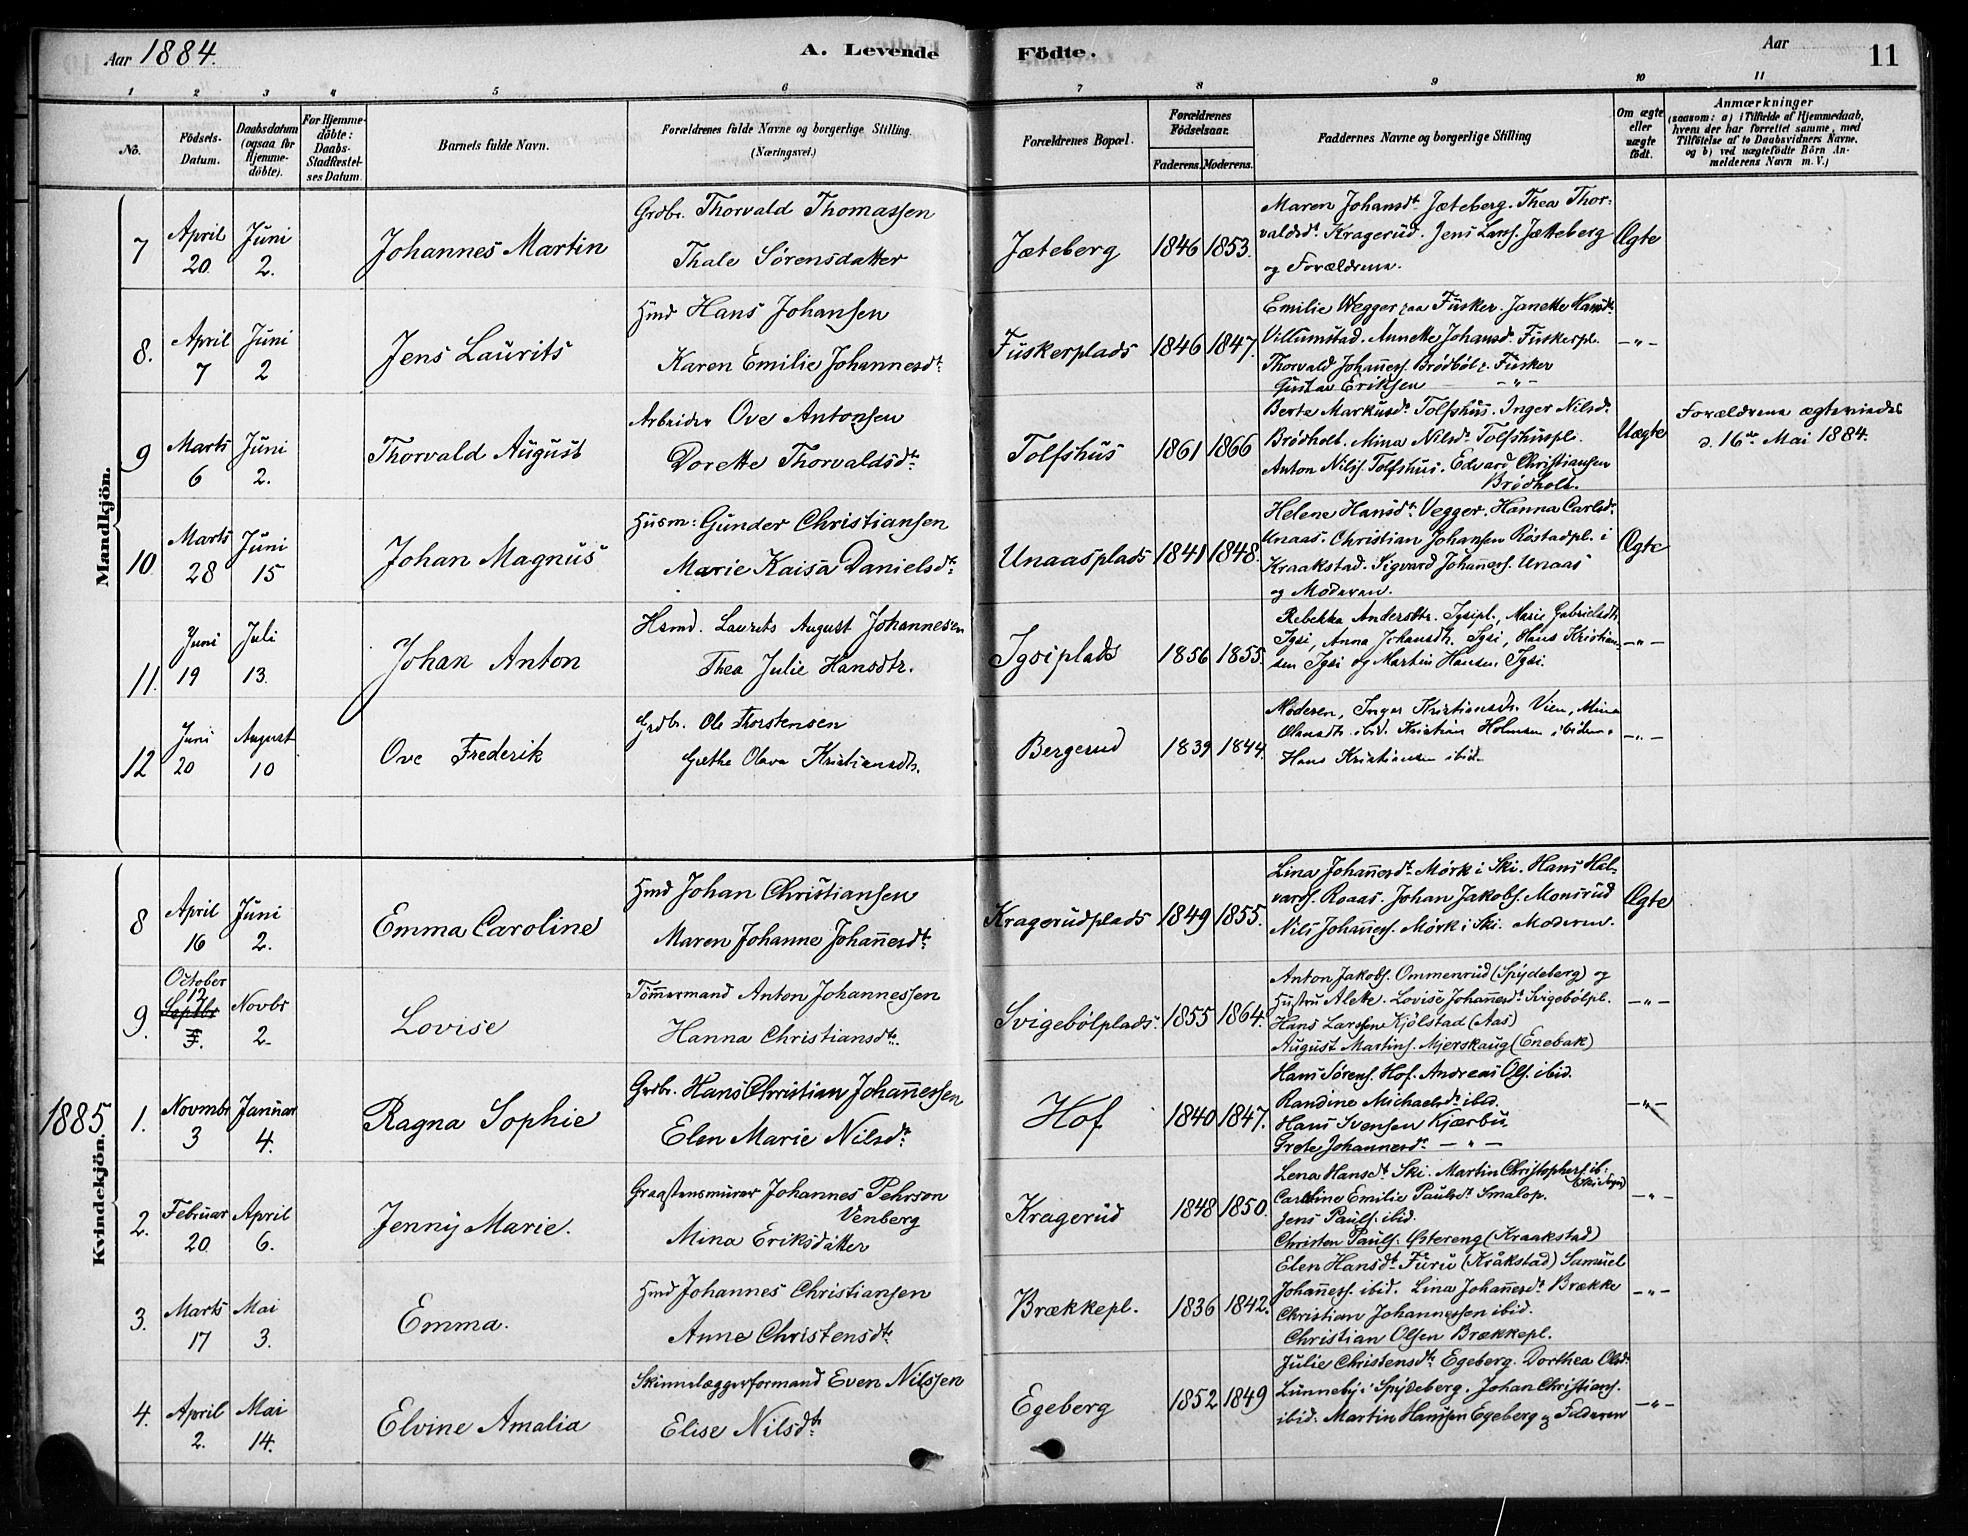 Aar 1884.
A. Levende
Födte.
Aar
11
1
2
3
4
5
6
7
8
9
10
11
No.
Födsels-Datum.
Daabsdatum (ogsaa for Hjemme-döbte).
For Hjemme-döbte: Daabs-Stadfæstel-ses Datum.
Barnets fulde Navn.
Forældrenes fulde Navne og borgerlige Stilling. (Næringsvei.)
Forældrenes Bopæl.
Forældrenes Födselsaar.
Faderens.
Moderens.
Faddernes Navne og borgerlige Stilling
Om ægte eller uægte födt.
Anmærkninger
(saasom: a) i Tilfælde af Hjemmedaab,
hvem der har forrettet samme, med
Tilföielse af to Daabsvidners Navne,
og b) ved uægtefödte Börn An-
melderens Navn m. V.)
Mandkjön.
7
April 20.
Juni 2.
Johannes Martin
Grdbr. Thorvald Thomassen
Thale Sörensdatter
Jæteberg
1846
1853.
Maren Johansdt. Jæteberg. Thea Thor-
valdsdt. Kragerud. Jens Lars. Jætteberg
og Forældrene.
Ægte
8.
April 7
Juni 2
Jens Laurits
Hmd Hans Johansen
Karen Emilie Johannesdt.
Fuskerplads
1846
1847.
Emilie Wegger paa Fusker. Janette Hansdt.
Villumstad. Annette Johansdt. Fuskerpl.
Thorvald Johannes. Brödböl p. Fusker
Gustav Eriksen — " —
— " —
9
Marts 6
Juni 2.
Thorvald August
Arbeider Ove Antonsen
Dorette Thorvaldsdt.
Tolfshus
1861
1866
Berte Markusdt. Tolfshus. Inger Nilsdt.
Brödholt. Mina Nilsdt. Tolfshuspl.
Anton Nilss. Tolfshus. Edvard Christiansen
Brödholt.
Uægte
Forældrene ægteviedes
d. 16de Mai 1884.
10
Marts 28
Juni 15
Johan Magnus
Husm: Gunder Christiansen
Marie Kaisa Danielsdt.
Unaasplads
1841
1848.
Helene Hansdt. Vegger. Hanna Carlsdt.
Unaas. Christian Johansen Röstadpl. i
Kraakstad. Sigvard Johanness. Unaas
og Moderen.
Ægte
11.
Juni 19
Juli 13.
Johan Anton
Hsmd. Laurits August Johannesen
Thea Julie Hansdtr.
Igsiplads
1856
1855.
Rebekka Andersdtr. Igsipl., Marie Gabrielsdtr.
Igsi, Anna Johansdtr. Igsi, Hans Kristian-
sen Igsi og Martin Hansen Igsi.
— " —
12
Juni 20
August 10
Ove Frederik
Grdbr. Ole Thorstensen
Grethe Olava Kristiansdtr.
Bergerud
1839
1844.
Moderen, Inger Kristiansdtr. Vien, Mina
Olausdtr. ibid. Kristian Holmsen ibidem.
Hans Kristiansen ibid.
— " —
Kvindekjön.
8
April 16
Juni 2.
Emma Caroline
Hmd Johan Christiansen
Maren Johanne Johannesdt.
Kragerudplads
1849
1855.
Lina Johannesdt. Mörk i Ski. Hans Hal-
vards. Roaas. Johan Jakobs. Monsrud
Nils Johanness. Mörk i Ski. Moderen.
Ægte
9.
October 12
Septbr 3.
Novbr 2.
Lovise
Tömmermand Anton Johannessen
Hanna Christiansdtr.
Svigebölplads.
1855
1864.
Anton Jakobs. Ommenrud (Spydeberg) og
Hustru Alette. Lovise Johannesdt. Svigebölpl.
Hans Larssen Kjölstad (Aas)
August Martins. Mjerskaug (Enebak)
— " —
1885
1.
Novmbr 3
Januar 4.
Ragna Sophie
Grdbr. Hans Christian Johannessen
Elen Marie Nilsdt.
Hof
1840
1847.
Hans Sörens. Hof. Andreas Ols. ibid.
Randine Michaelsdt. ibid.
Hans Svensen Kjærbu
Grete Johannesdt. — " —
— " —
2.
Februar 20.
April 6.
Jenny Marie.
Graastensmurer Johannes Pehrson
Venberg
Mina Eriksdatter
Kragerud
1848
1850.
Lena Hansdt. Ski. Martin Christophers. ib.
(Ski Sogn)
Caroline Emilie Paulsdt. Smalop.
Jens Pauls. ibid.
Christen Pauls. Östereng (Kraakstad)
— " —
3.
Marts 17
Mai 3.
Emma.
Hmd Johannes Christiansen
Anne Christensdtr.
Brækkepl.
1836
1842.
Elen Hansdt. Furu (Kråkstad) Samuel
Johanness. ibid. Lina Johannesdt. Brække
Christian Johannessen ibid.
Christian Olsen Brækkepl.
— " —
4.
April 2.
Mai 14.
Elvine Amalia
Skinnelæggerformand Even Nilssen
Elise Nilsdtr.
Egeberg
1852
1849
Julie Christensdtr. Egeberg. Dorthea Olsdt.
Lunneby i Spydeberg. Johan Christians.
ibid. Martin Hanssen Egeberg og Faderen
— " —